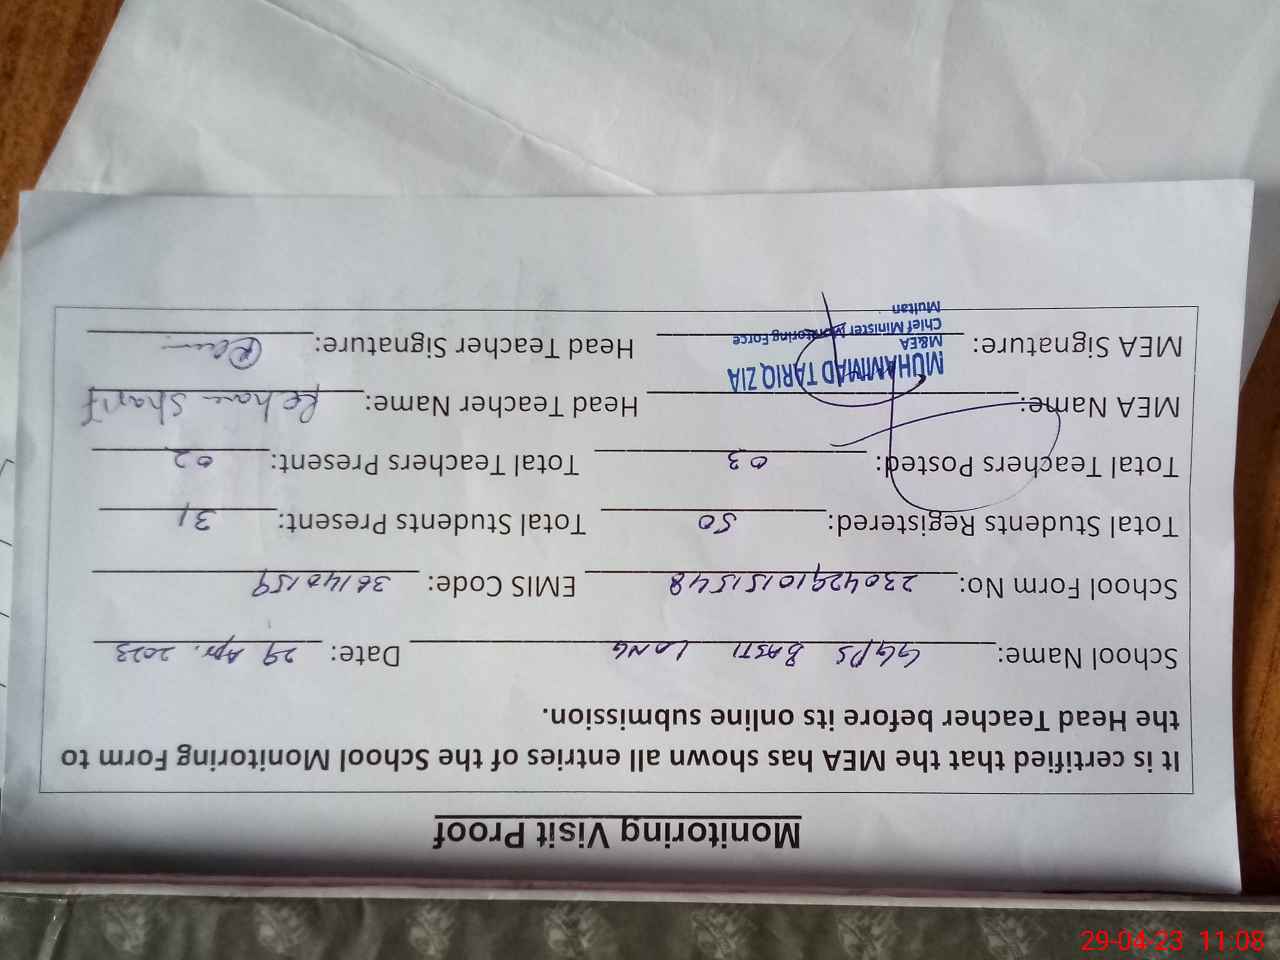 Monitoring Visit Proof
It is certified that the MEA has shown all entries of the School Monitoring Form to
the Head Teacher before its online submission.
School Name: GGPS BASTI LANG Date: 29 Apr. 2023
School Form No: 230429101515148 EMIS Code: 36140159
Total Students Registered: 50 Total Students Present: 31
Total Teachers Posted: 03 Total Teachers Present: 02
MEA Name: Head Teacher Name: Rehana Sharif
MUHAMMAD TARIQ ZIA
M&EA
Chief Minister Monitoring Force
Multan
MEA Signature: Head Teacher Signature:
29-04-23 11:08